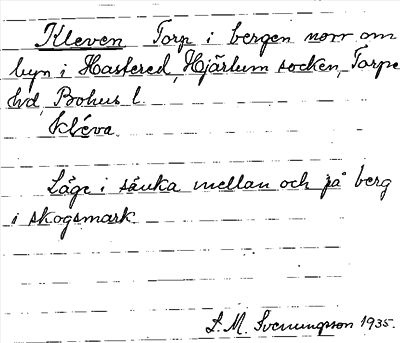 Kleven Torp i bergen norr om
byn i Hastered, Hjärtum socken, Torpe
hd, Bohus l.
kléva
Läge i sänka mellan och på berg
i skogsmark
L. M. Svenungsson 1935.